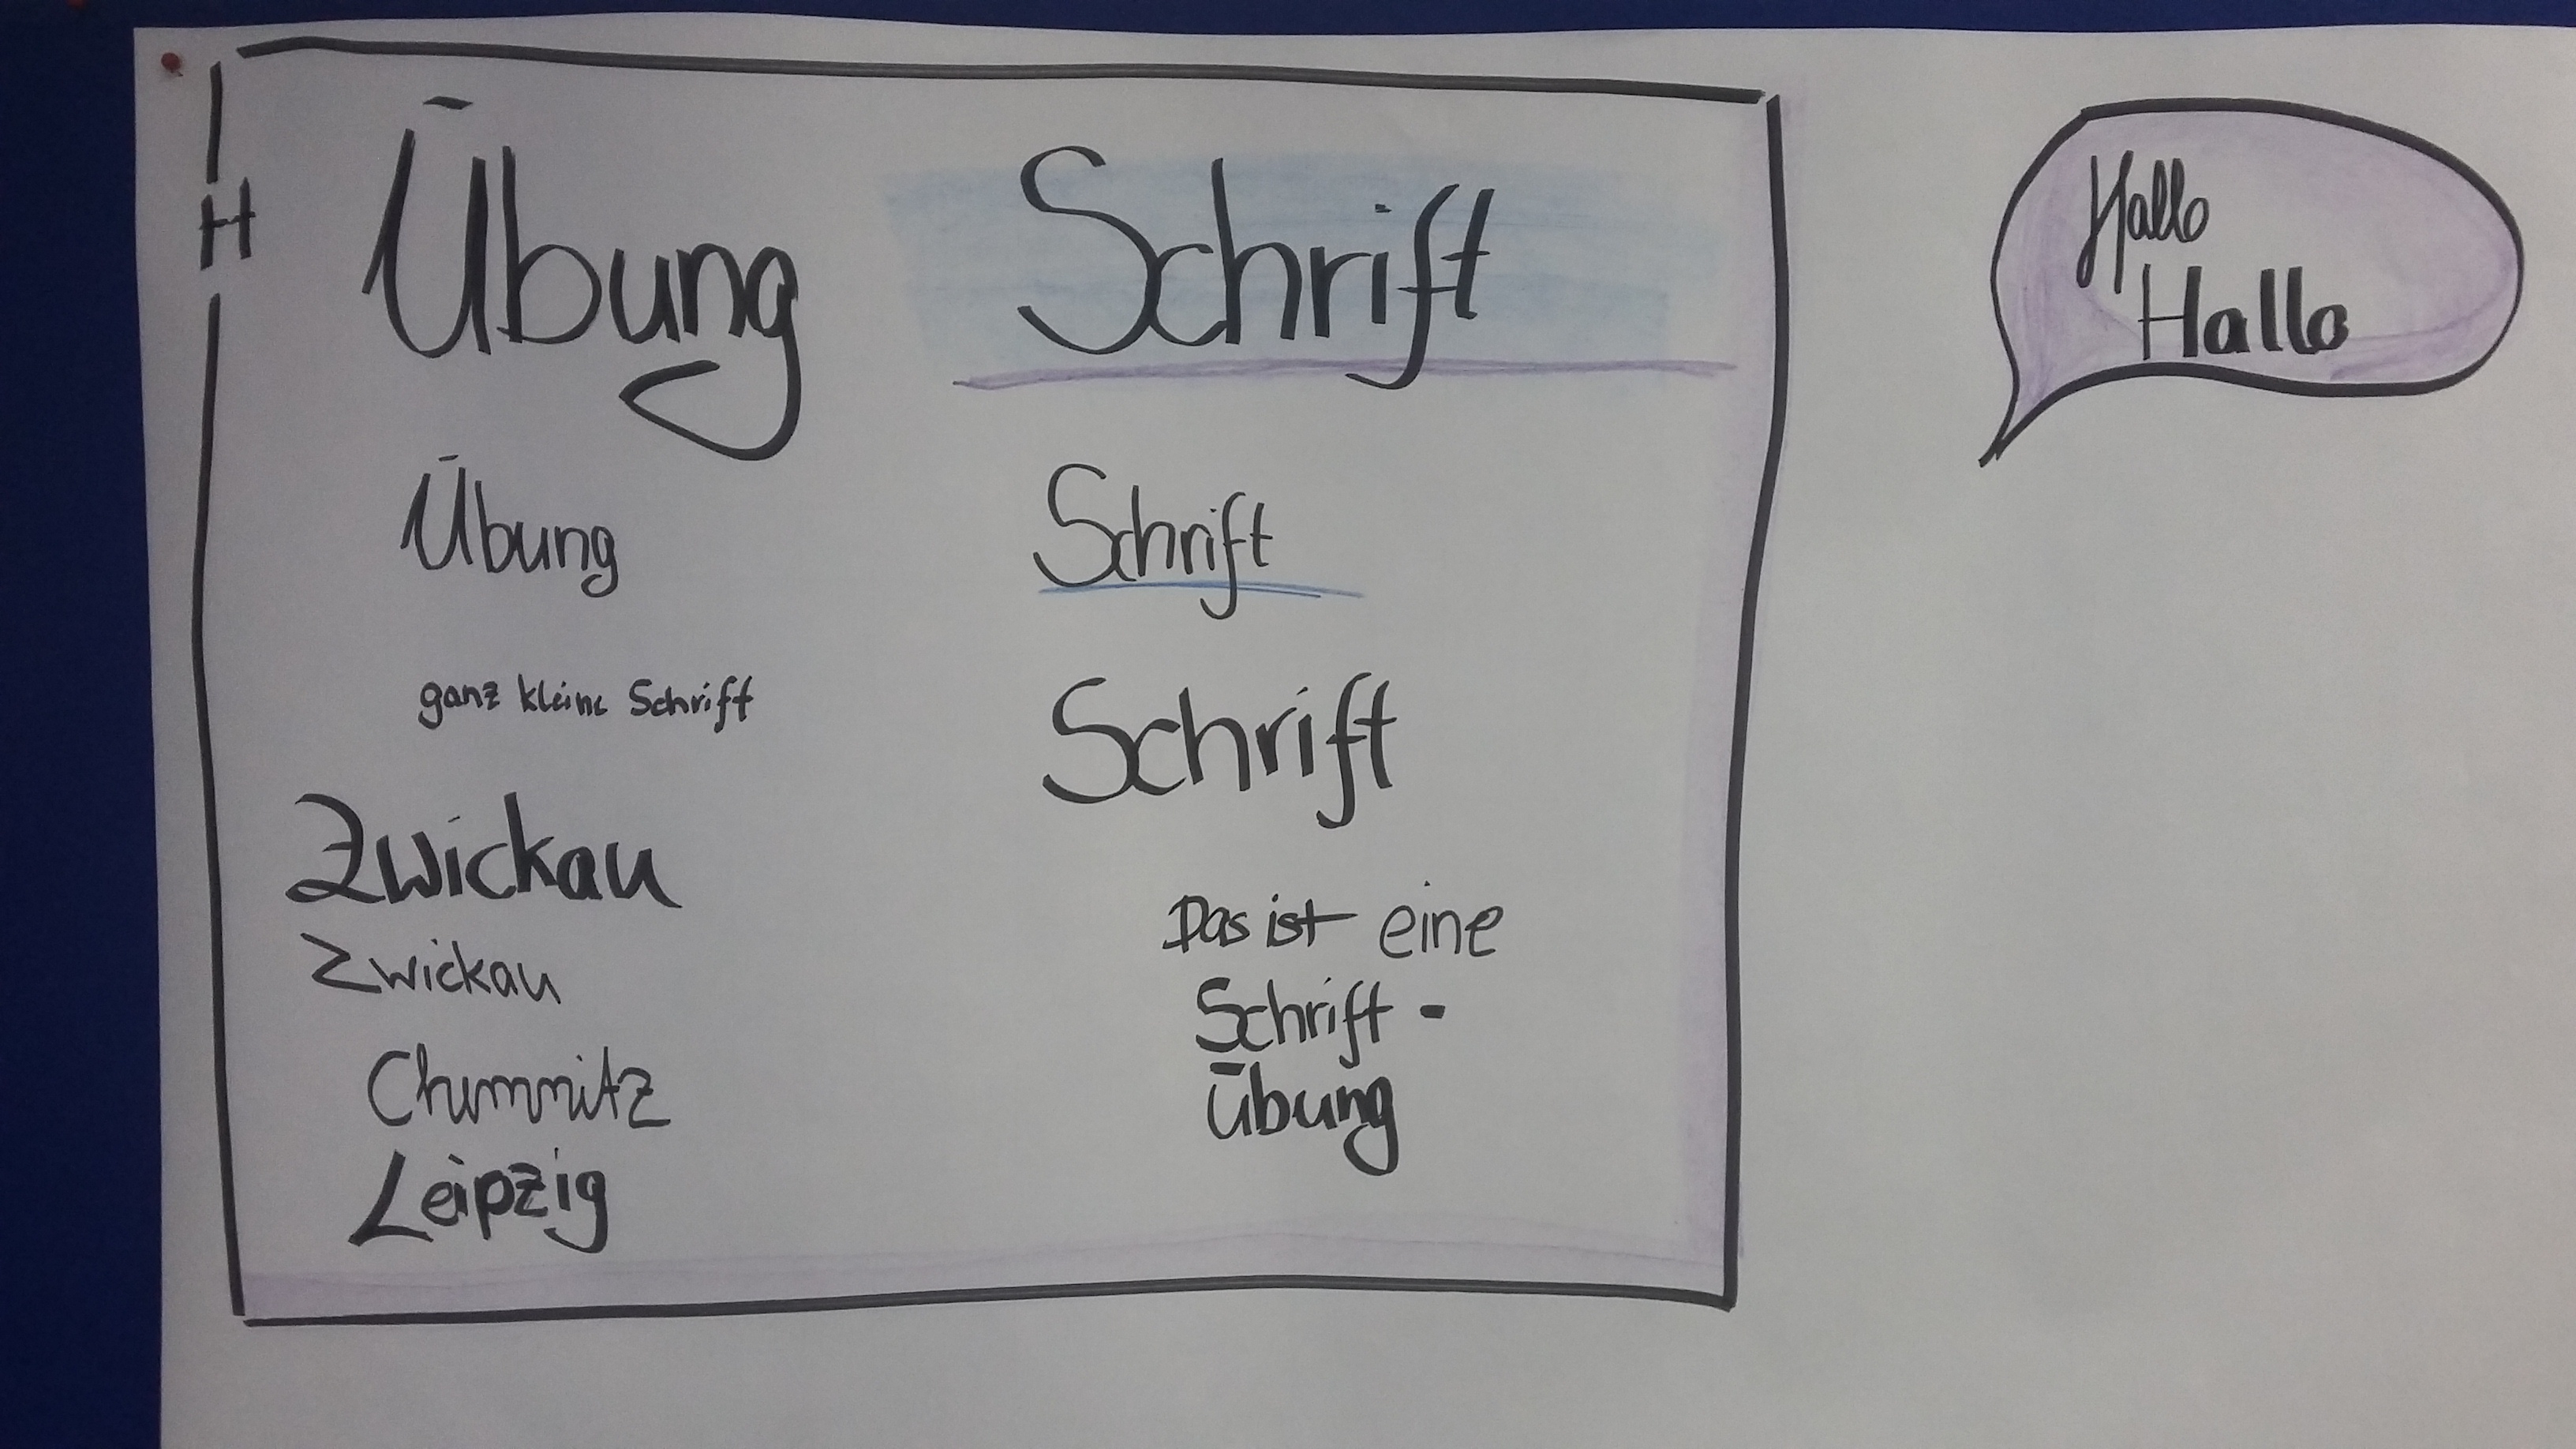 H
Übung
Schrift
Übung
Schrift
ganz kleine Schrift
Schrift
Zwickau
Zwickau
Chemnitz
Leipzig
Das ist eine
Schrift -
Übung
Hallo
Hallo